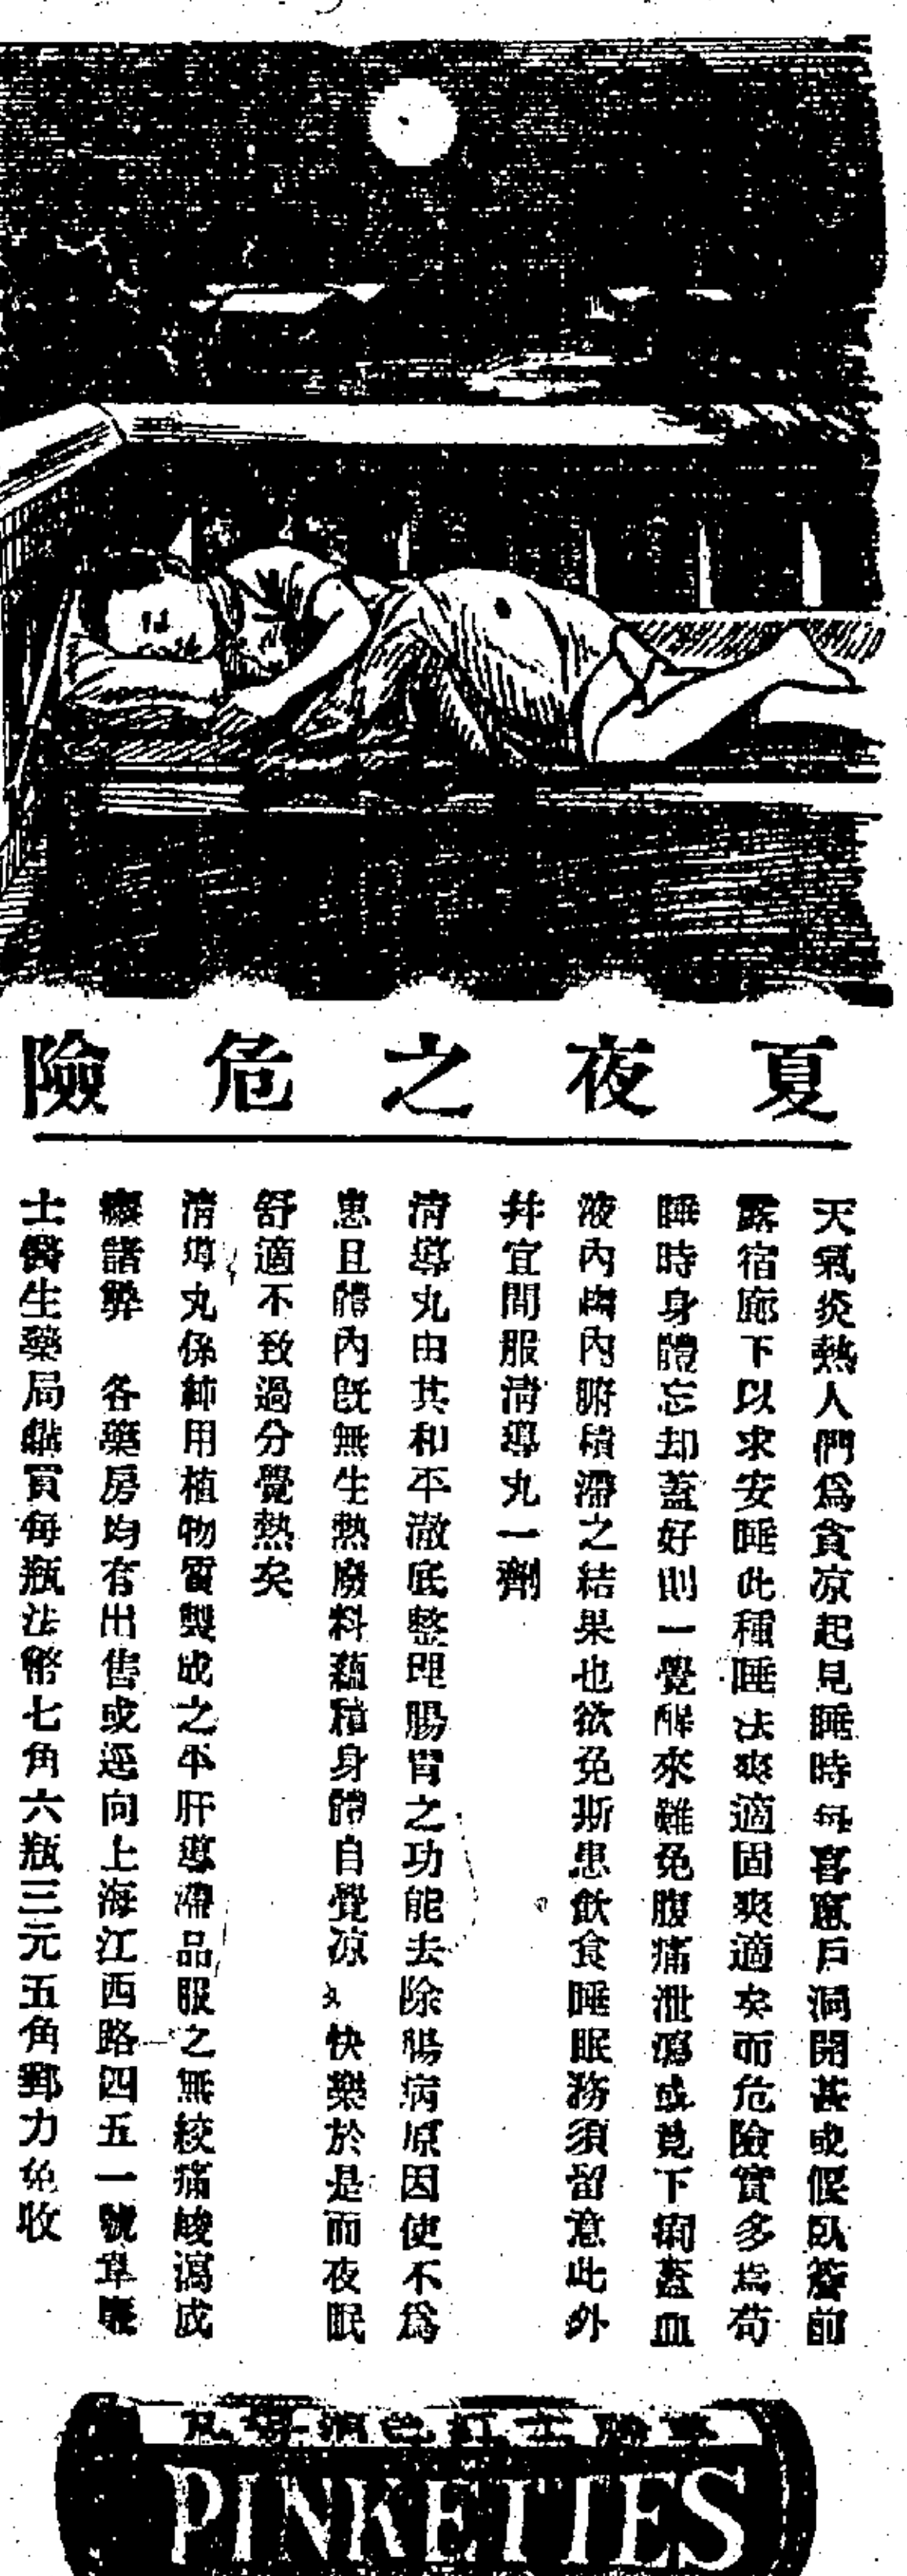 夏夜之危險
天氣炎熱人們爲貪凉起見睡時每喜窻戶洞開甚或偃臥簷前
露宿廊下以求安睡此種睡法爽適固爽適矣而危險實多焉苟
睡時身體忘却蓋好則一覺醒來難免腹痛泄瀉或竟下痢蓋血
液內臟內腑積滯之結果也欲免斯患飲食睡眠務須留意此外
幷宜間服清導丸一劑
清導丸由其和平澈底整理腸胃之功能去除腸病原因使不爲
患且體內旣無生熱廢料蘊積身體自覺凉爽快樂於是而夜眠
舒適不致過分覺熱矣
清導丸係純用植物質製成之平肝導滯品服之無絞痛峻瀉成
癮諸弊 各藥房均有出售或逕向上海江西路四五一號韋廉
士醫生藥局購買每瓶法幣七角六瓶三元五角郵力免收
韋廉士紅色清導丸
PINKETTES